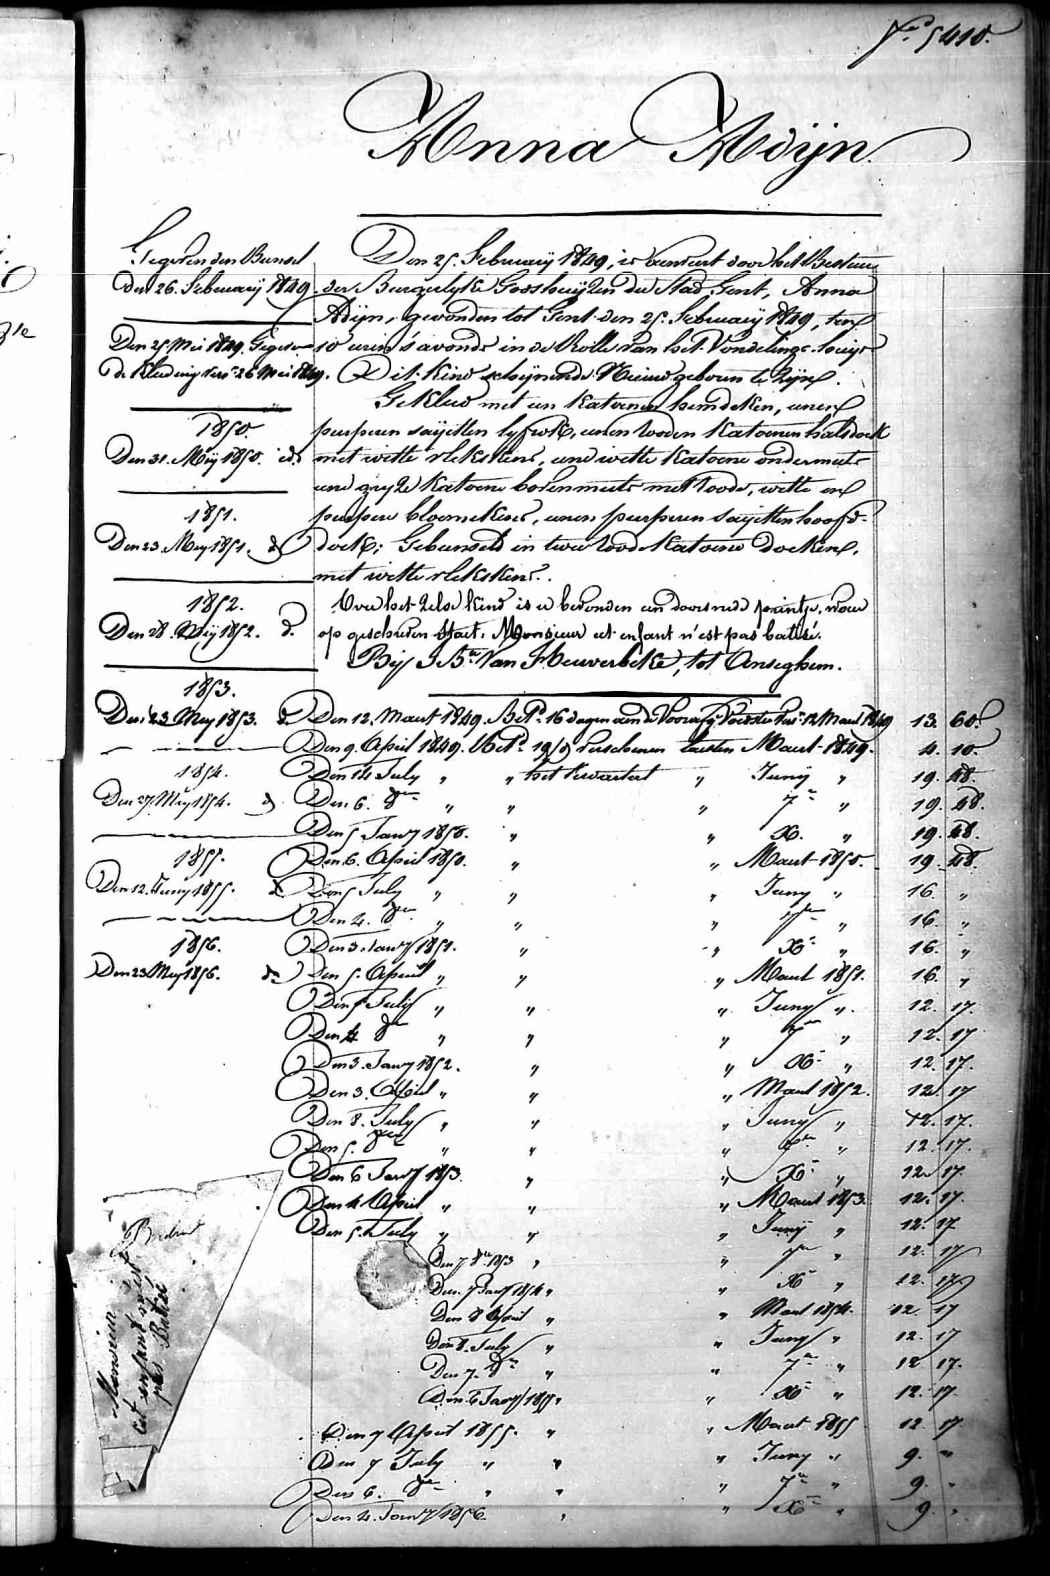 N.º 5410.
Anna Adijn.
Gegeven den Bunsel
den 26. February 1849.
Den 25 Mei 1849. Gegeven
de Kleeding van 26 Mei 1849.
1850.
Den 31. Meij 1850. id.
1851.
Den 23. Mey 1851. d.
1852.
Den 28. Meij 1852. d.
1853.
Den 23 Mey 1853. d.
1854.
Den 27. Mey 1854. d.
1855.
Den 12. Juny 1855. d.
1856.
Den 23 Mey 1856. d.
Den 25. February 1849, is door het Bestuur
der Burgerlyke Godshuyzen der Stad Gent, Anna
Adijn, gevonden tot Gent den 25. February 1849, ten
10 uren s'avonds in de Rolle van het Vondelings-huys
Dit kind schijnende Nieuwgeboren te zijn.
Gekleed met een Katoenen hemdeken, eenen
purperen saijetten lyfrok, eenen rooden Katoenen halsdoek
met witte vlekskens, eene witte Katoene ondermuts
eene gryze Katoene bovenmuts met roode, witte en
purpere bloemekens, eenen purperen saijetten hoofd-
doek; Gebunseld in twee roode Katoene doeken,
met witte vlekskens.
Over het zelve kind is er bevonden een doorsnede printje, waer
op geschreven staet: Monsieur cet enfant n'est pas batisé.
Bij J. Bte Van Heuverbeke, tot Anseghem.
Den 12. Maart 1849. Bet. 16 dagen 12 Maart 1849 13. 60.
Den 9. April 1849. Bet. 19 verschenen Maart 1849. 4. 10.
Den 14 July " " het kwartael " Juny " 19. 48.
Den 6. 8er " " " 7er " 19. 48.
Den 5. Janry 1850. " " X. " 19. 48.
Den 6. April 1850. " " Maart 1850. 19. 48.
Den 5 July " " " Juny " 16. "
Den 4. 8er " " " 7er " 16. "
Den 3. Janry 1851. " " Xr " 16. "
Den 5. April " " " Maart 1851. 16. "
Den 5 July " " " Juny " 12. 17.
Den 4 8er " " " 7er " 12. 17
Den 3. Janry 1852. " " Xr " 12. 17.
Den 3. April " " " Maart 1852. 12. 17
Den 8. July " " " Juny " 12. 17.
Den 5. 8er " " " 7er " 12. 17.
Den 6 Janry 1853. " " Xr " 12. 17
Den 4 April " " " Maart 1853. 12. 17.
Den 5. July " " " Juny " 12. 17
Den 7 8er 1853 " " 7er " 12. 17
Den 7 Janry 1854 " " Xr " 12. 17
Den 8 April " " Maart 1854. 12. 17
Den 8. July " " Juny " 12. 17
Den 7. 8er " " 7er " 12 17.
Den 6 Janry 1855 " " Xr " 12. 17
Den 7 April 1855. " " Maart 1855 12 17
Den 7 July " " " Juny " 9. "
Den 6. 8er " " " 7er " 9. "
Den 4. Janry 1856. " " Xr " 9. "
Monsieur
cet enfant n'est
pas Batisé